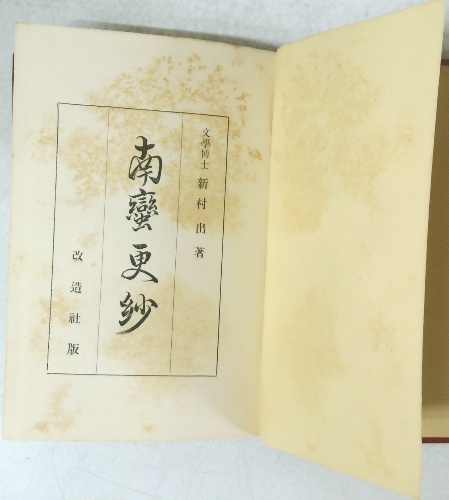 文學博士 新村出著
南蠻更紗
改造社版